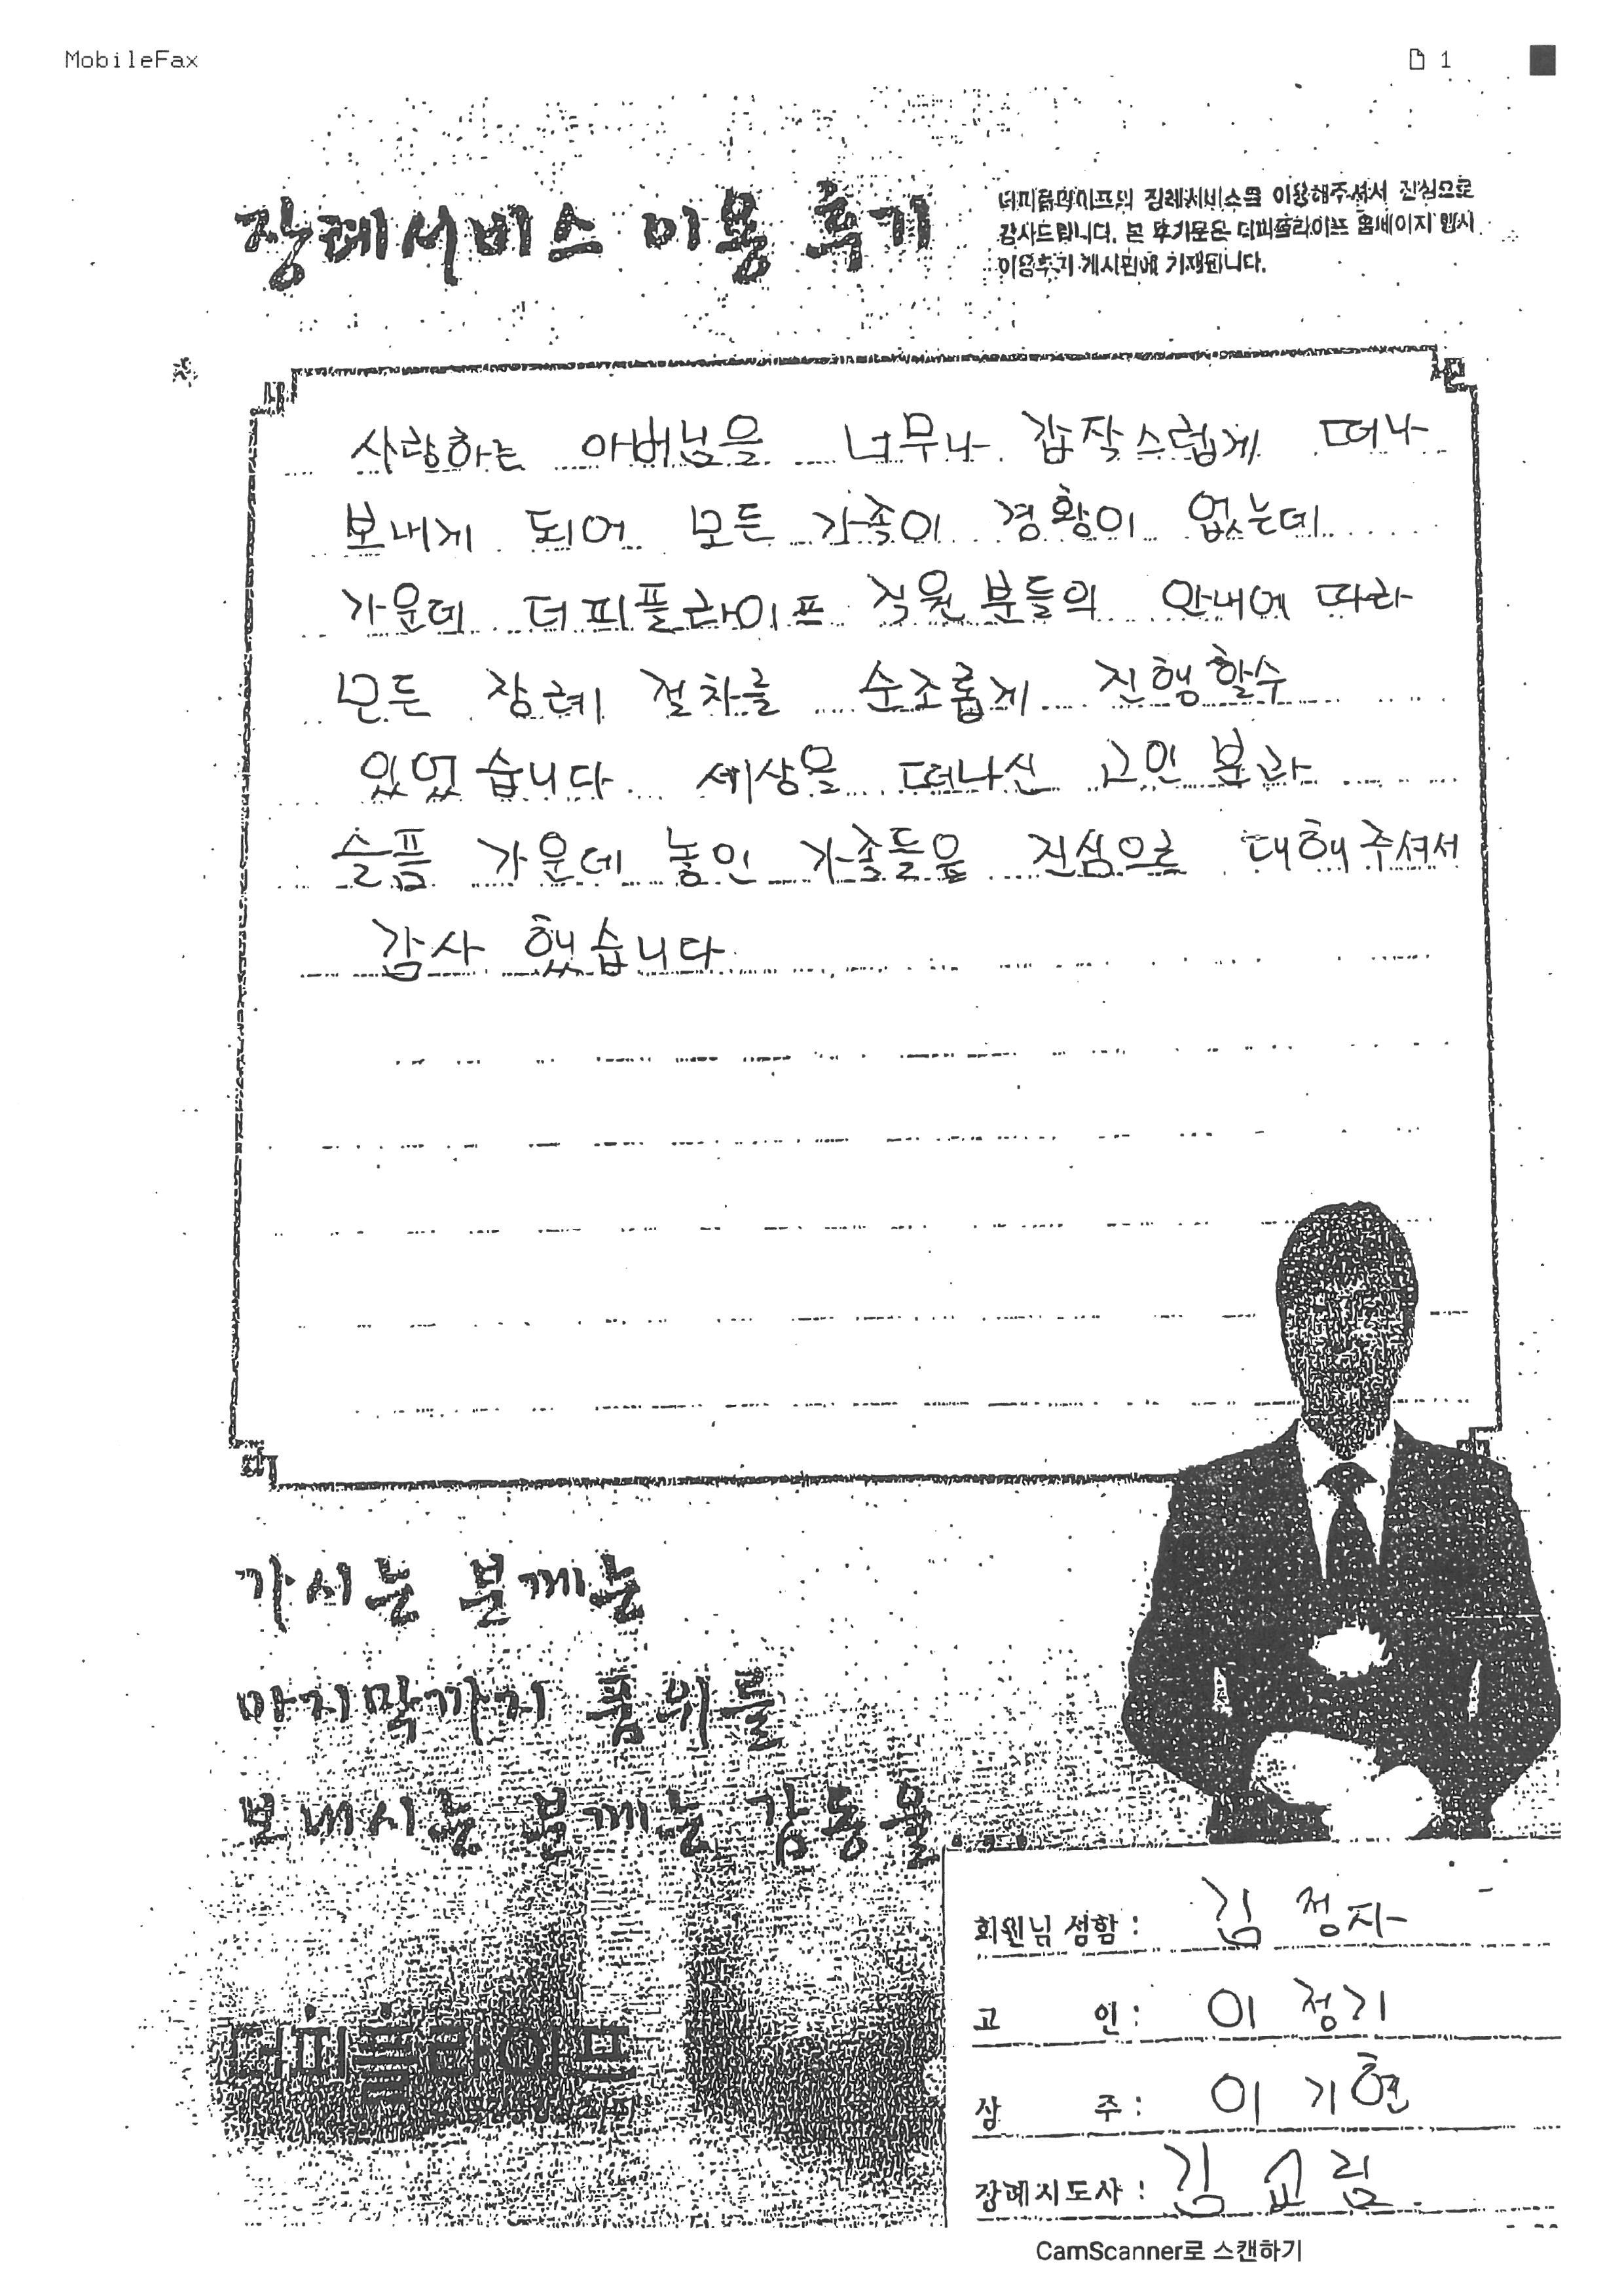 MobileFax
1
장례서비스 이용 후기
더피플라이프의 장례서비스를 이용해주셔서 진심으로
감사드립니다. 본 후기문은 더피플라이프 홈페이지 행사
이용후기 게시판에 기재됩니다.
사랑하는 아버님을 너무나 갑작스럽게 떠나
보내게 되어 모든 가족이 경황이 없는데
가운데 더피플라이프 직원분들의 안내에 따라
모든 장례 절차를 순조롭게 진행할수
있었습니다 세상을 떠나신 고인 분과
슬픔 가운데 놓인 가족들을 진심으로 대해주셔서
감사 했습니다
가시는 분께는
마지막까지 품위를
보내시는 분께는 감동을
더피플라이프
회원님 성함: 김정자
고 인: 이정기
상 주: 이기현
장례지도사: 김교림
CamScanner로 스캔하기